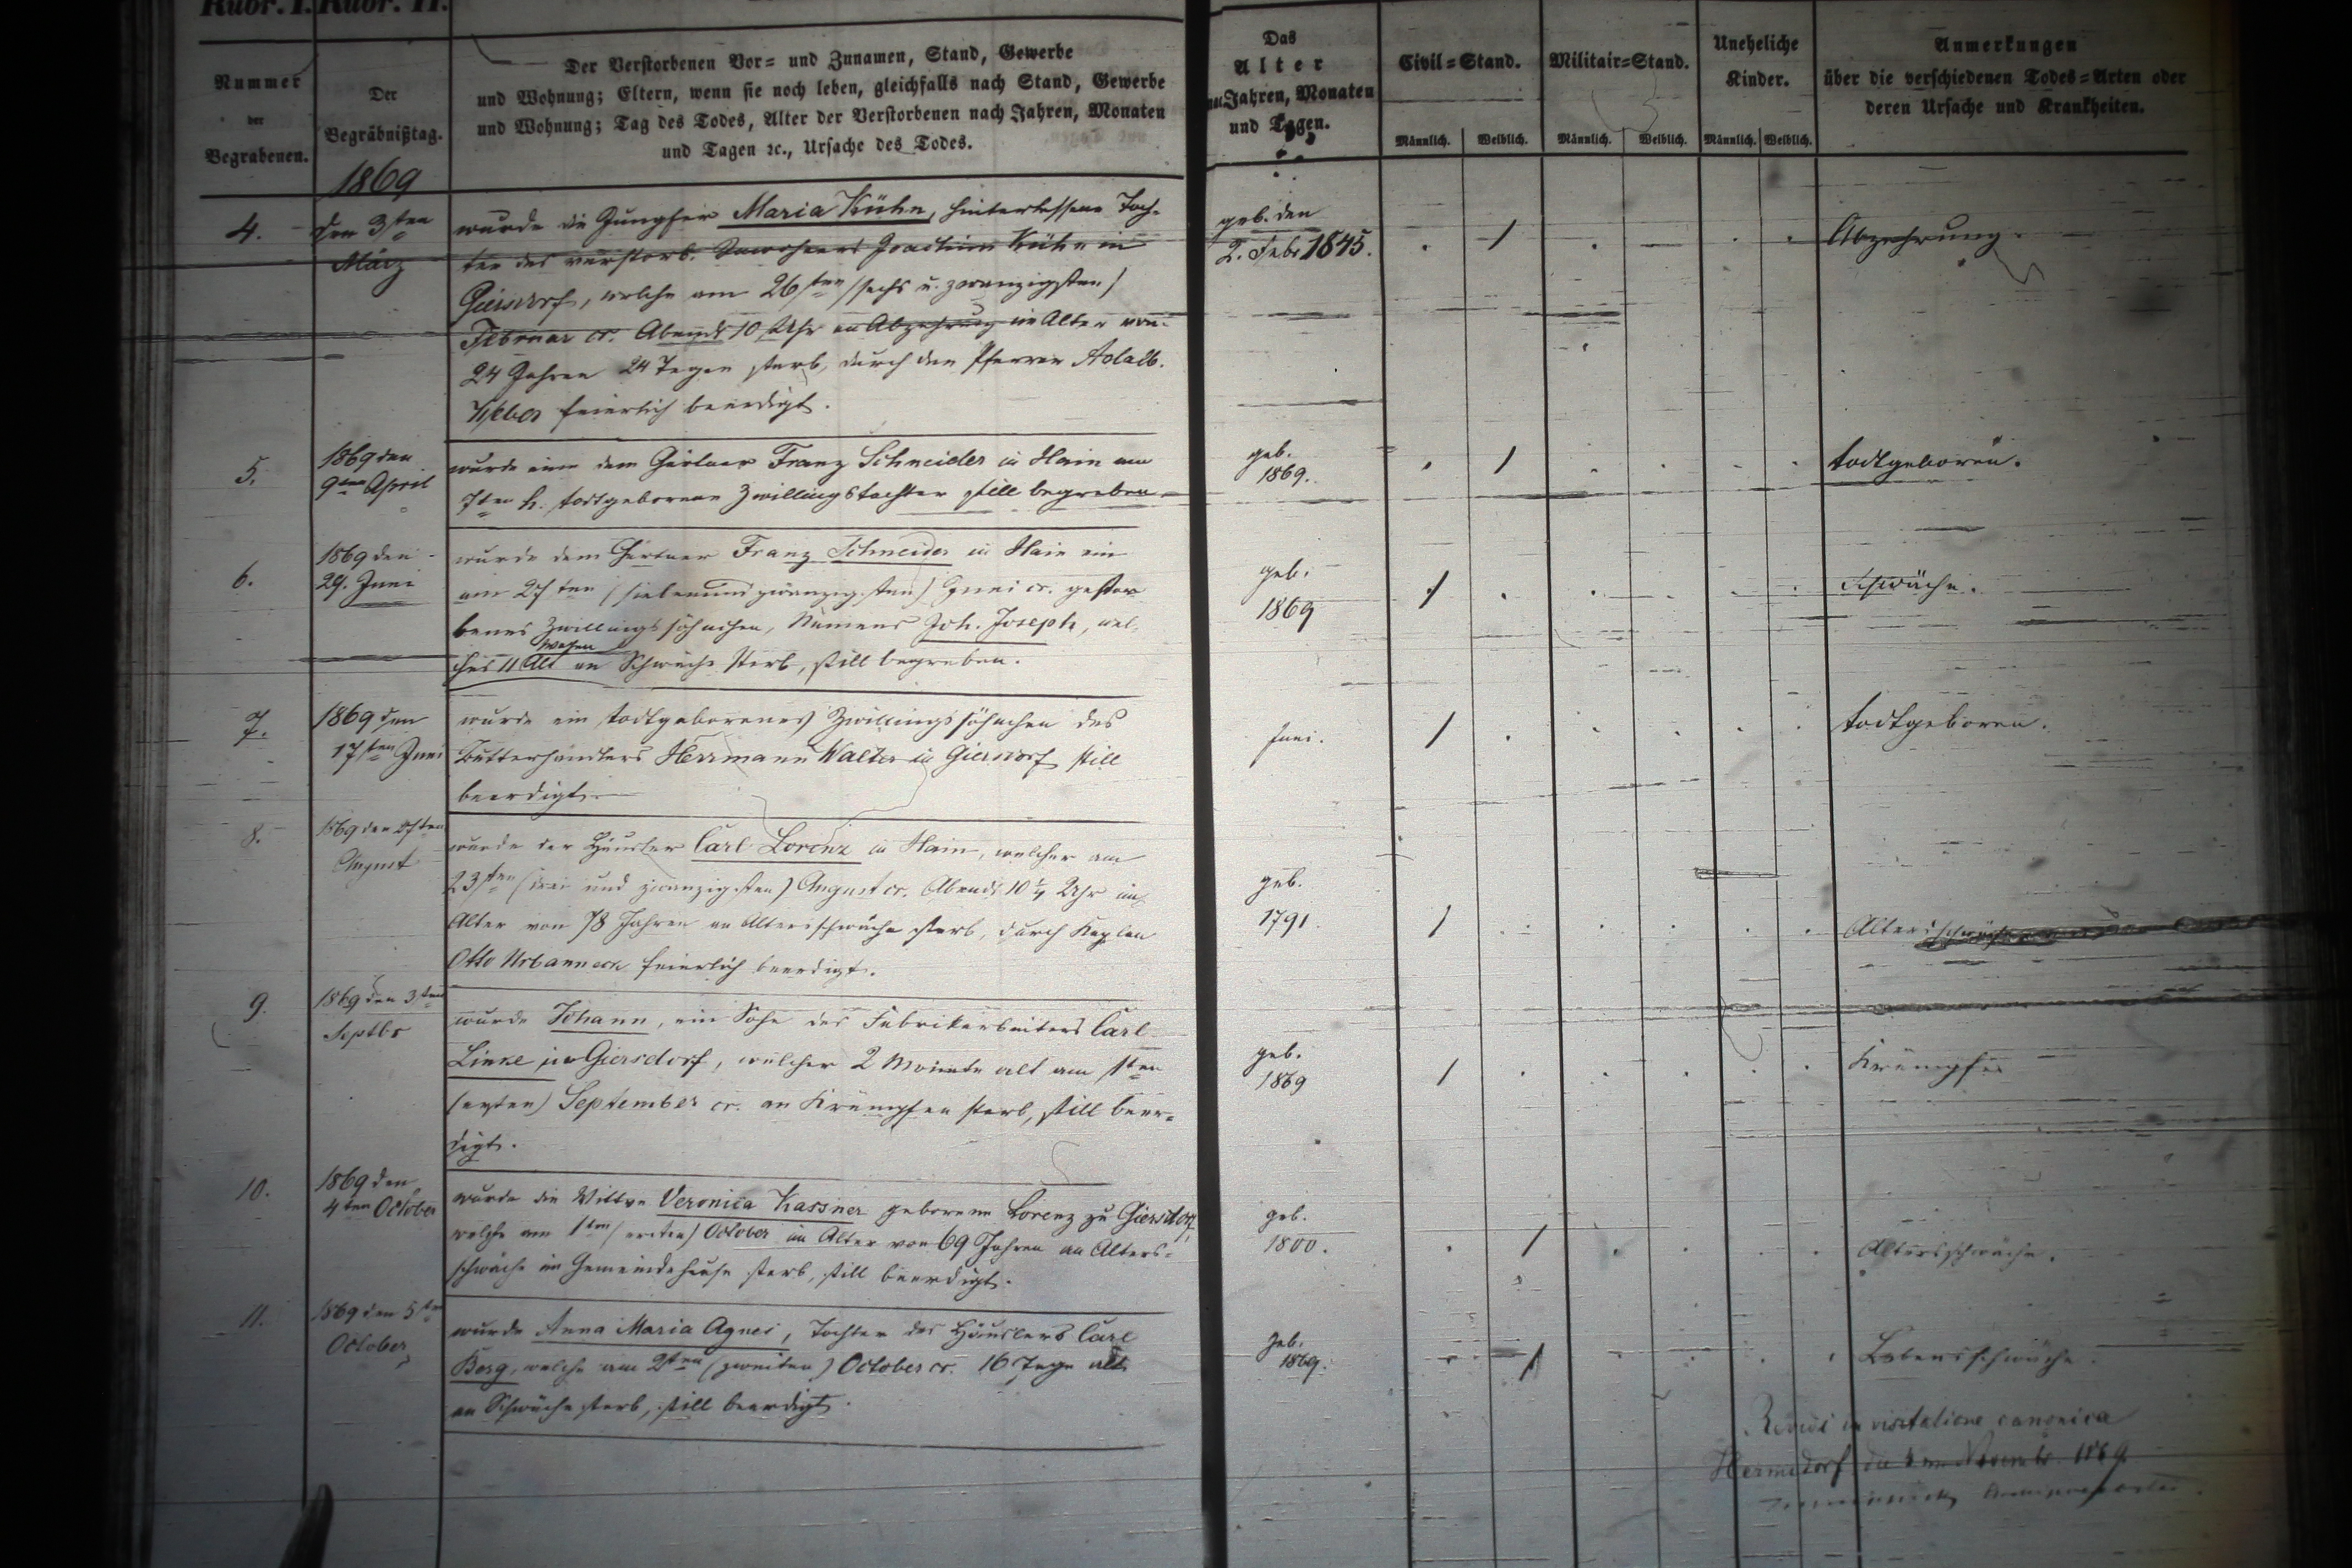 Rubr. I. Rubr. II.
Nummer
der
Begrabenen.
Der
Begräbnißtag.
1869
Der Verstorbenen Vor= und Zunamen, Stand, Gewerbe
und Wohnung; Eltern, wenn sie noch leben, gleichfalls nach Stand, Gewerbe
und Wohnung; Tag des Todes, Alter der Verstorbenen nach Jahren, Monaten
und Tagen ꝛc., Ursache des Todes.
Das
Alter
Jahren, Monaten
und Tagen.
Civil=Stand.
Männlich. Weiblich.
Militair=Stand.
Männlich. Weiblich.
Uneheliche
Kinder.
Männlich. Weiblich.
Anmerkungen
über die verschiedenen Todes=Arten oder
deren Ursache und Krankheiten.
4.
den 3ten
März
wurde die Jungfer Maria Kühn, hinterlassene Toch-
ter des verstorb. Inwohners Joachim Kühn in
Giersdorf, welche am 26sten (sechs u. zwanzigsten)
Februar cr. Abends 10 Uhr an Abzehrung im Alter von
24 Jahren 24 Tagen starb, durch den Pfarrer Adalb.
feierlich beerdigt.
geb. den
2. Febr 1845.
Abzehrung.
5.
1869 den
9ten April
wurde eine dem Gärtner Franz Schneider in Hain am
7ten h. todtgeborene Zwillingstochter still begraben
geb.
1869.
todtgeboren.
6.
1869 den
29. Juni
wurde dem Gärtner Franz Schneider in Hain ein
am 27ten (siebenundzwanzigsten) Juni cr. gestor
benes Zwillingssöhnchen, Namens Joh. Joseph, wel-
Wochen
ches 11 Alt an Schwäche starb, still begraben.
geb.
1869
Schwäche.
7.
1869 den
17ten Juni
wurde ein todtgeborenes Zwillingssöhnchen des
Butterhändlers Herrmann Walter in Giersdorf still
beerdigt.
Juni.
todtgeboren.
8.
1869 den
August
wurde der Häusler Carl Lorenz in Hain, welcher am
23sten (drei und zwanzigsten) August cr. Abends 10 1/4 Uhr im
Alter von 78 Jahren an Altersschwäche starb, durch Kaplan
Otto Urbanneck feierlich beerdigt.
geb.
1791.
Altersschwäche
9.
1869 den 3ten
Septbr
wurde Johann, ein Sohn des Fabrikarbeiters Carl
Linke in Giersdorf, welcher 2 Monate alt am 1ten
(ersten) September cr. an Krämpfen starb, still beer-
digt.
geb.
1869
Krämpfe
10.
1869 den
4ten October
wurde die Wittwe Veronica Kassner geborene Lorenz zu Giersdorf,
welche am 1ten (ersten) October im Alter von 69 Jahren an Alters-
schwäche im Gemeindehause starb, still beerdigt.
geb.
1800.
Altersschwäche.
11.
1869 den 5ten
October
wurde Anna Maria Agnes, Tochter des Häuslers Carl
Berg, welche am 2ten (zweiten) October cr. 16 Tage alt
an Schwäche starb, still beerdigt.
geb.
1869.
Lebensschwäche.
Revidi in visitatione canonica
Hermsdorf 1869